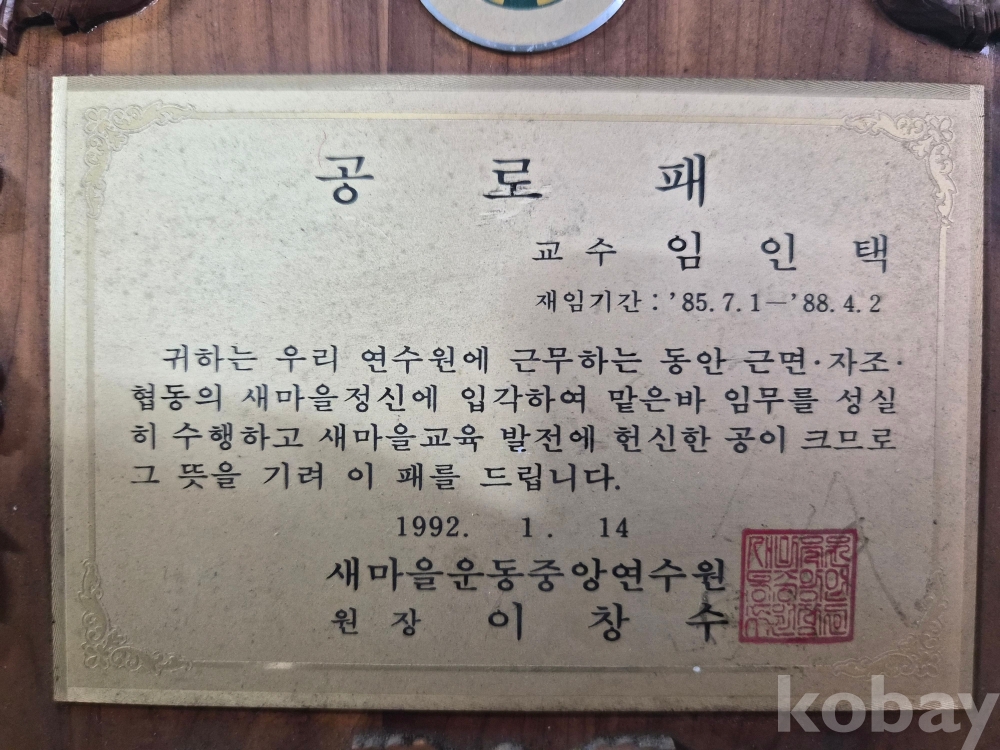 공 로 패
교 수 임 인 택
재임기간 : '85. 7. 1 - '88. 4. 2
귀하는 우리 연수원에 근무하는 동안 근면·자조·
협동의 새마을정신에 입각하여 맡은바 임무를 성실
히 수행하고 새마을교육 발전에 헌신한 공이 크므로
그 뜻을 기려 이 패를 드립니다.
1992. 1. 14
새마을운동중앙연수원
원 장 이 창 수
kobay